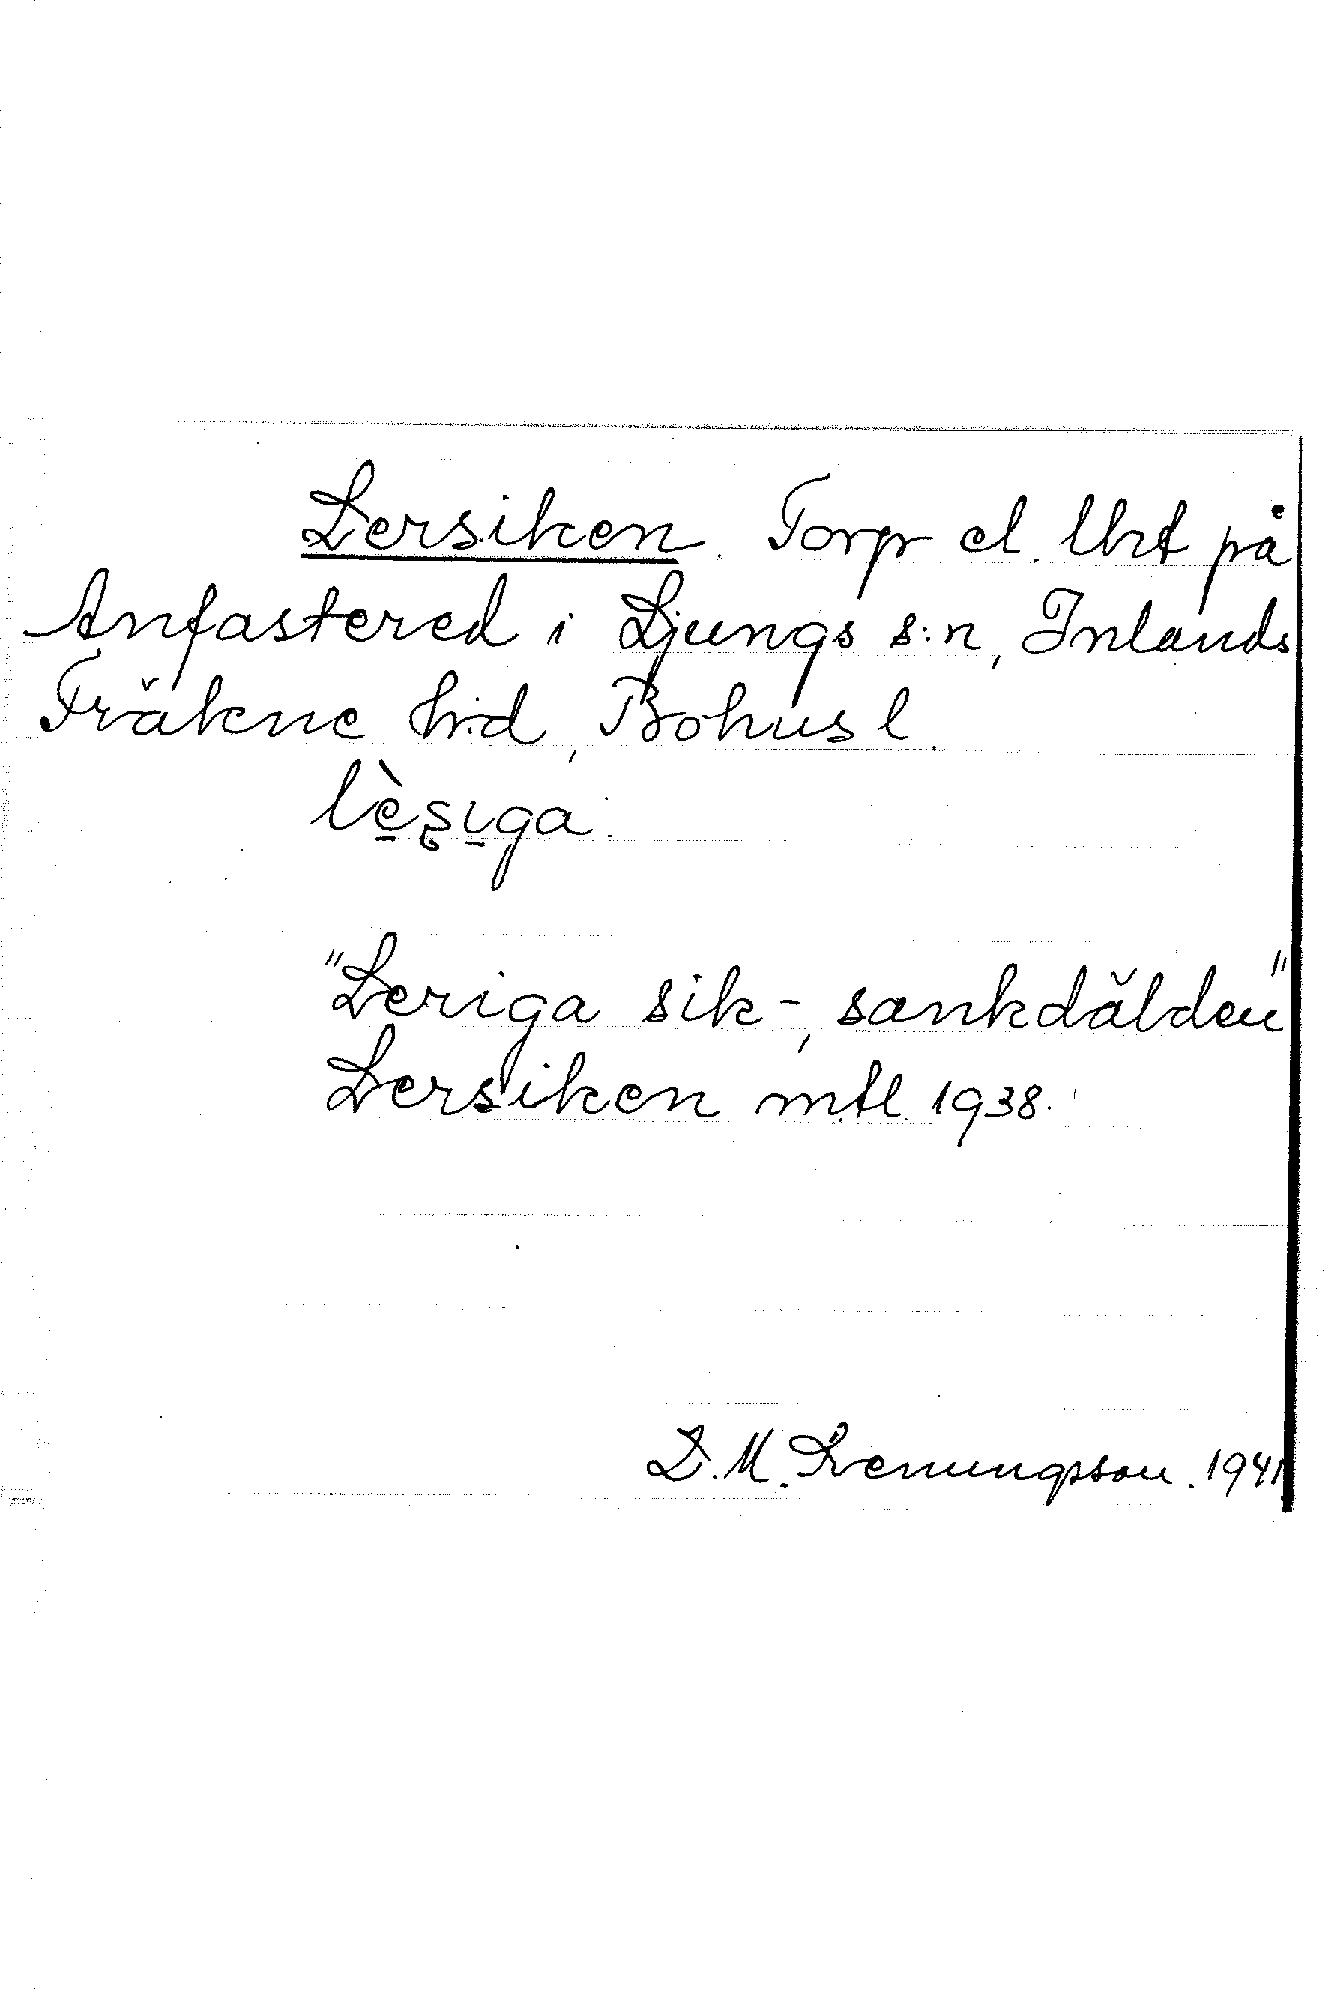 Lersiken. Torp el. lht på
Anfastered i Ljungs s:n, Inlands
Fräkne hd, Bohusl.
lèsiga.
"Leriga sik-, sankdälden"
Lersiken mtl. 1938.
D. M. 1941